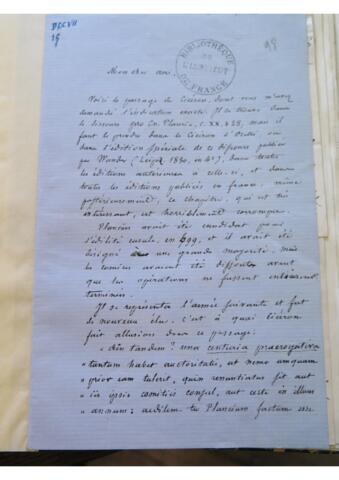 DCVII
15
98
BIBLIOTHÈQUE
DE
L'INSTITUT
DE FRANCE
Mon cher ami.
Voici le passage de Cicéron dont vous m'avez
demandé l'indication exacte. Il se trouve dans
le discours pro Cn. Plancio, c. XX, § 28, mais il
faut le prendre dans le Cicéron d'Orelli, ou
dans l'édition spéciale de ce discours publiée
par Wunder (Leipzig 1830, in 4°), dans toutes
les éditions antérieures à celle-ci, et dans
toutes les éditions publiées en France, même
postérieurement, ce chapitre, qui est très
intéressant, est horriblement corrompu.
Plancius avait été candidat pour
l'édilité curule, en 699, et il avait été
désigné à une grande majorité. mais
les comices avaient été dissous avant
que les opérations ne fussent entièrement
terminées.
Il se représenta l'année suivante et fut
de nouveau élu. c'est à quoi Cicéron
fait allusion dans ce passage:
« An tandem? una centuria praerogativa
« tantum habet auctoritatis, ut nemo umquam
« prior eam tulerit, quin renuntiatus sit aut
« iis ipsis comitiis consul, aut certe in illum
« annum: aedilem tu Plancium factum esse